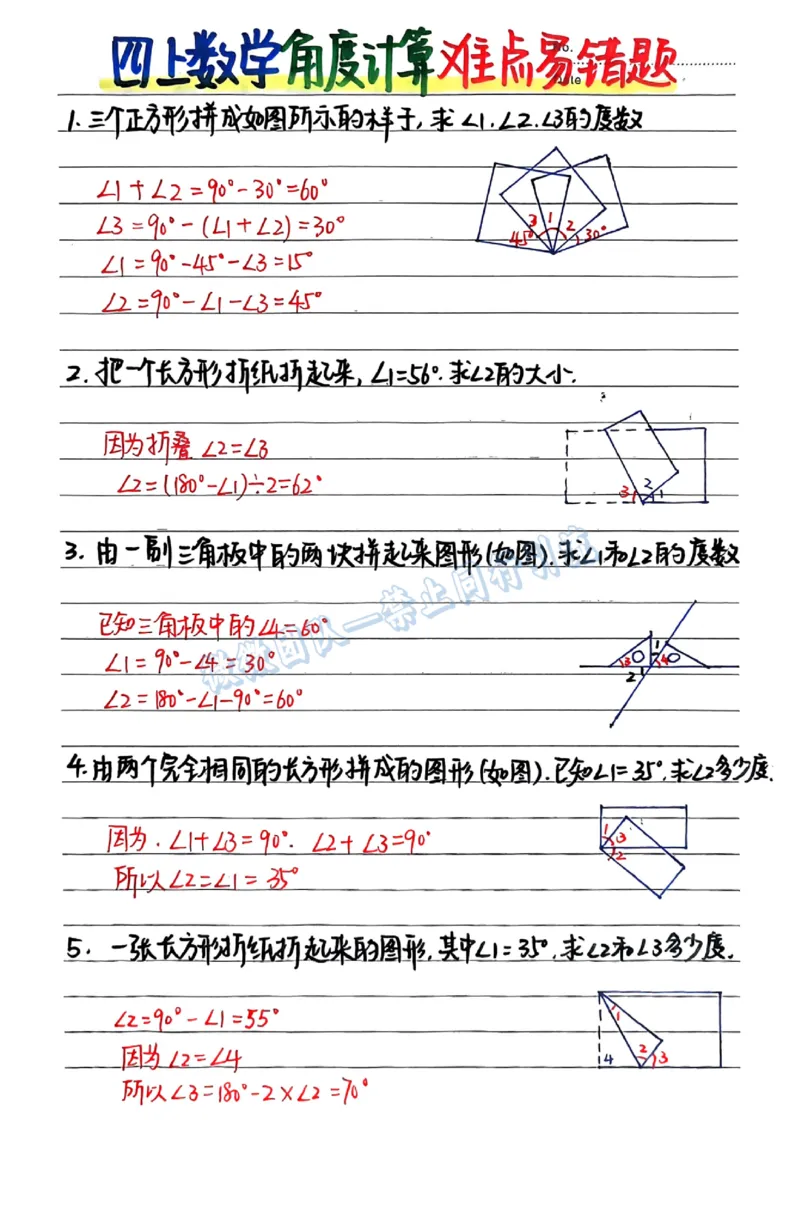 四上数学角度计算难点易错题
No.
Date
1.三个正方形拼成如图所示的样子,求∠1.∠2.∠3的度数
∠1+∠2=90°-30°=60°
∠3=90°-(∠1+∠2)=30°
∠1=90°-45°-∠3=15°
∠2=90°-∠1-∠3=45°
3 1 2
45° 30°
2.把一个长方形折纸折起来,∠1=56°.求∠2的大小.
因为折叠 ∠2=∠3
∠2=(180°-∠1)÷2=62°
3 2 1
3.由一副三角板中的两块拼起来图形(如图).求∠1和∠2的度数
已知三角板中的∠4=60°
∠1=90°-∠4=30°
∠2=180°-∠1-90°=60°
1
3 4
2
微微团队—禁止同行引流
4.由两个完全相同的长方形拼成的图形(如图).已知∠1=35°.求∠2多少度.
因为.∠1+∠3=90°. ∠2+∠3=90°
所以∠2=∠1=35°
1 3
2
5.一张长方形折纸折起来的图形,其中∠1=35°.求∠2和∠3多少度.
∠2=90°-∠1=55°
因为∠2=∠4
所以∠3=180°-2×∠2=70°
1
4 2 3